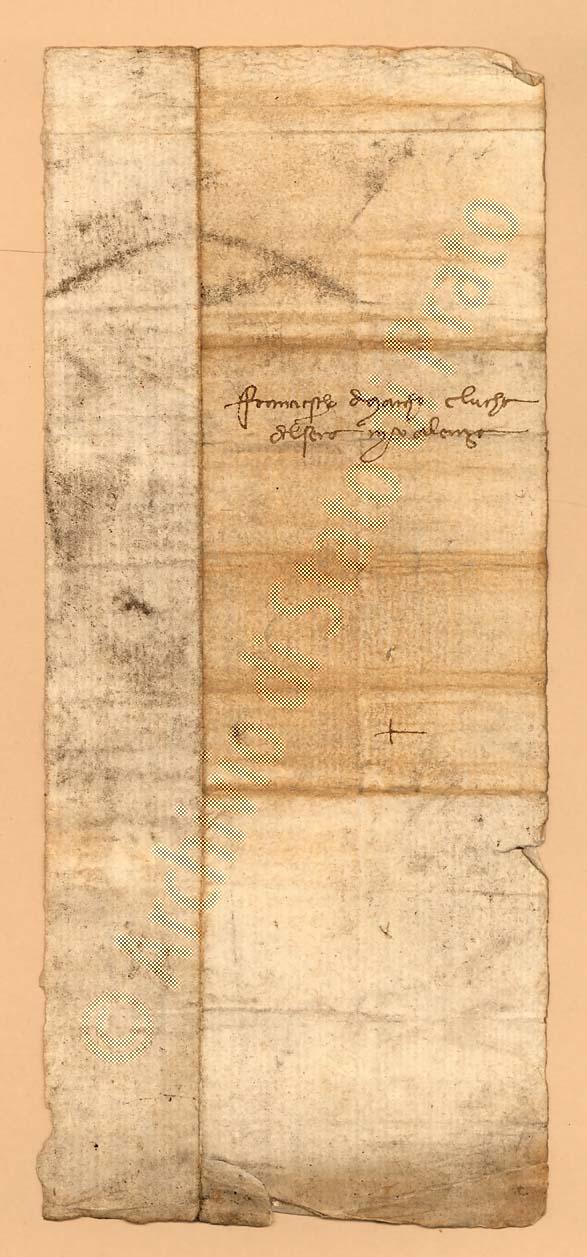 Francescho di marcho e lucha
del sera in valenza
© Archivio di Stato di Prato